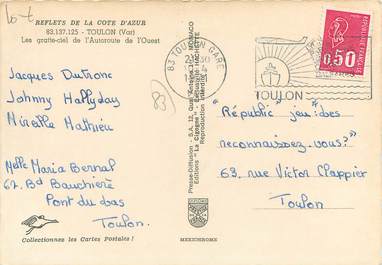 REFLETS DE LA COTE D'AZUR
83.137.125 - TOULON (Var)
Les gratte-ciel de l'Autoroute de l'Ouest
Jacques Dutronc
Johnny Hallyday
Mireille Mathieu
Melle Maria Bernal
67. Bd Bauchière
Pont du Las
Toulon.
Collectionnez les Cartes Postales !
83
Presse-Diffusion - S.A.
MONACO
Editions "La Cigogne"
HACHETTE
Reproduction interdite
MEXICHROME
83 TOULON GARE
TOULON
0,50
"République" jeu "des
reconnaissez-vous?"
63, rue Victor Clappier
Toulon